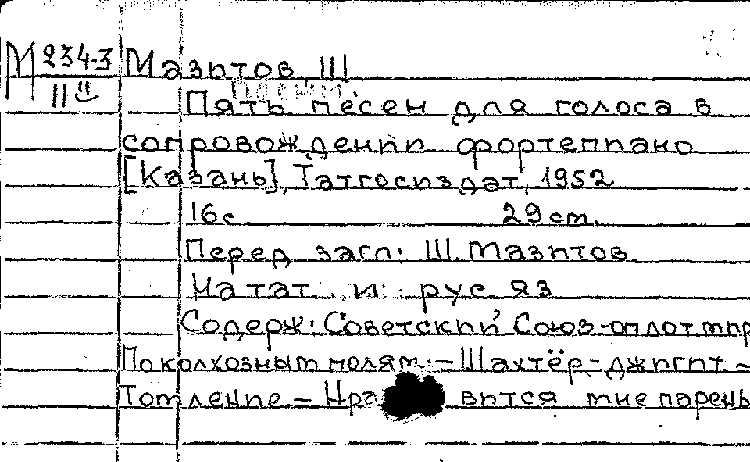 М 234-3 Мазитов, Ш
II
Пять песен для голоса в
сопровождении фортепиано
[Казань], Татгосиздат, 1952
16с 29см.
Перед загл: Ш. Мазитов
На тат и рус яз
Содерж: Советский Союз-оплот мир
По колхозным полям.-Шахтёр-джигит-
Томление-Нра вится мне парень